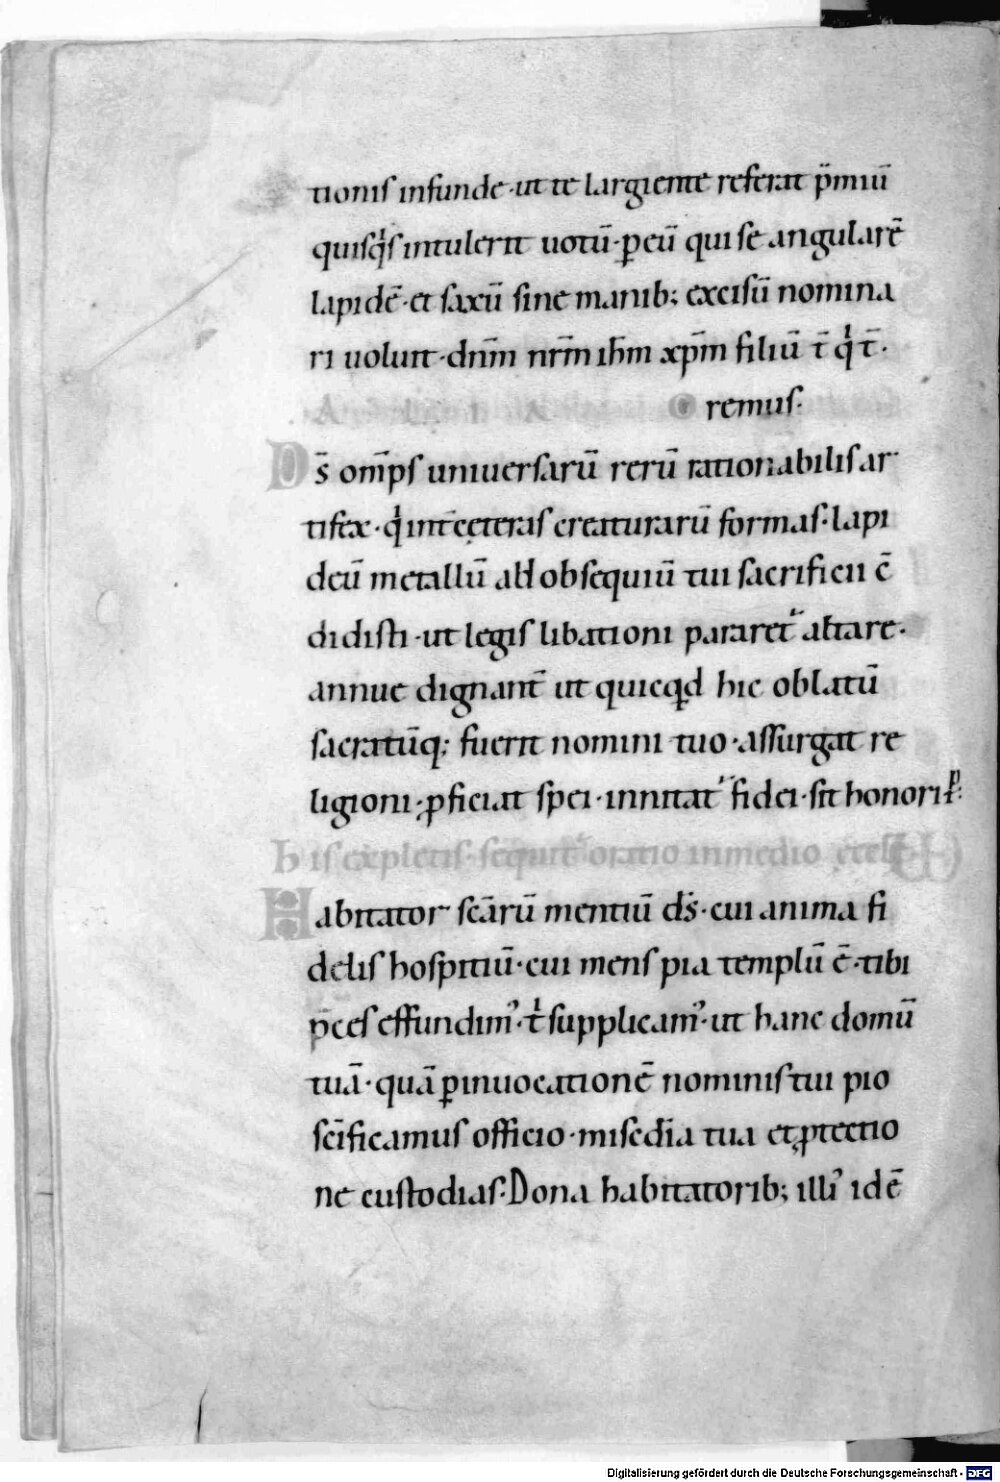 tionis infunde · ut te largiente referat p̄miū
quisqͥs intulerit uotū · ꝑ eū qui se angularē
lapidē · et saxū sine manib; excisū nomina
ri uoluit · dn̄m nr̄m ih̄m xp̄m filiū t̄ q̇ t̄ ·
A L I A O remus.
Ds̄ om̄ps uniuersarū rerū rationabilis ar
tifex · q̇ int̄ cęteras creaturarū formas · lapi
deū metallū ad obsequiū tui sacrificii c̄
didisti · ut legis libationi pararet᷑ altare ·
annue dignant̄ ut quicqd hic oblatū
sacratūq; fuerit nomini tuo · assurgat re
ligioni · ꝓficiat spei · innitat᷑ fidei · sit honori · ꝑ:
his expletis · sequit᷑ oratio in medio eccłę
Habitator sc̄arū mentiū ds̄ · cui anima fi
delis hospitiū · cui mens pia templū ē · tibi
p̄ces effundim᾿ · t̄ supplicam᾿ · ut hanc domū
tuā · quā ꝑ inuocationē nominis tui pio
sc̄ificamus officio · misc̄dia tua et ꝓtectio
ne custodias · Dona habitatorib; illi᾿ idē
Digitalisierung gefördert durch die Deutsche Forschungsgemeinschaft - DFG